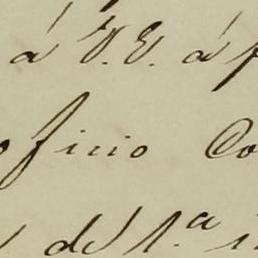 á V. E. á
oficio Co
de 1.ª i